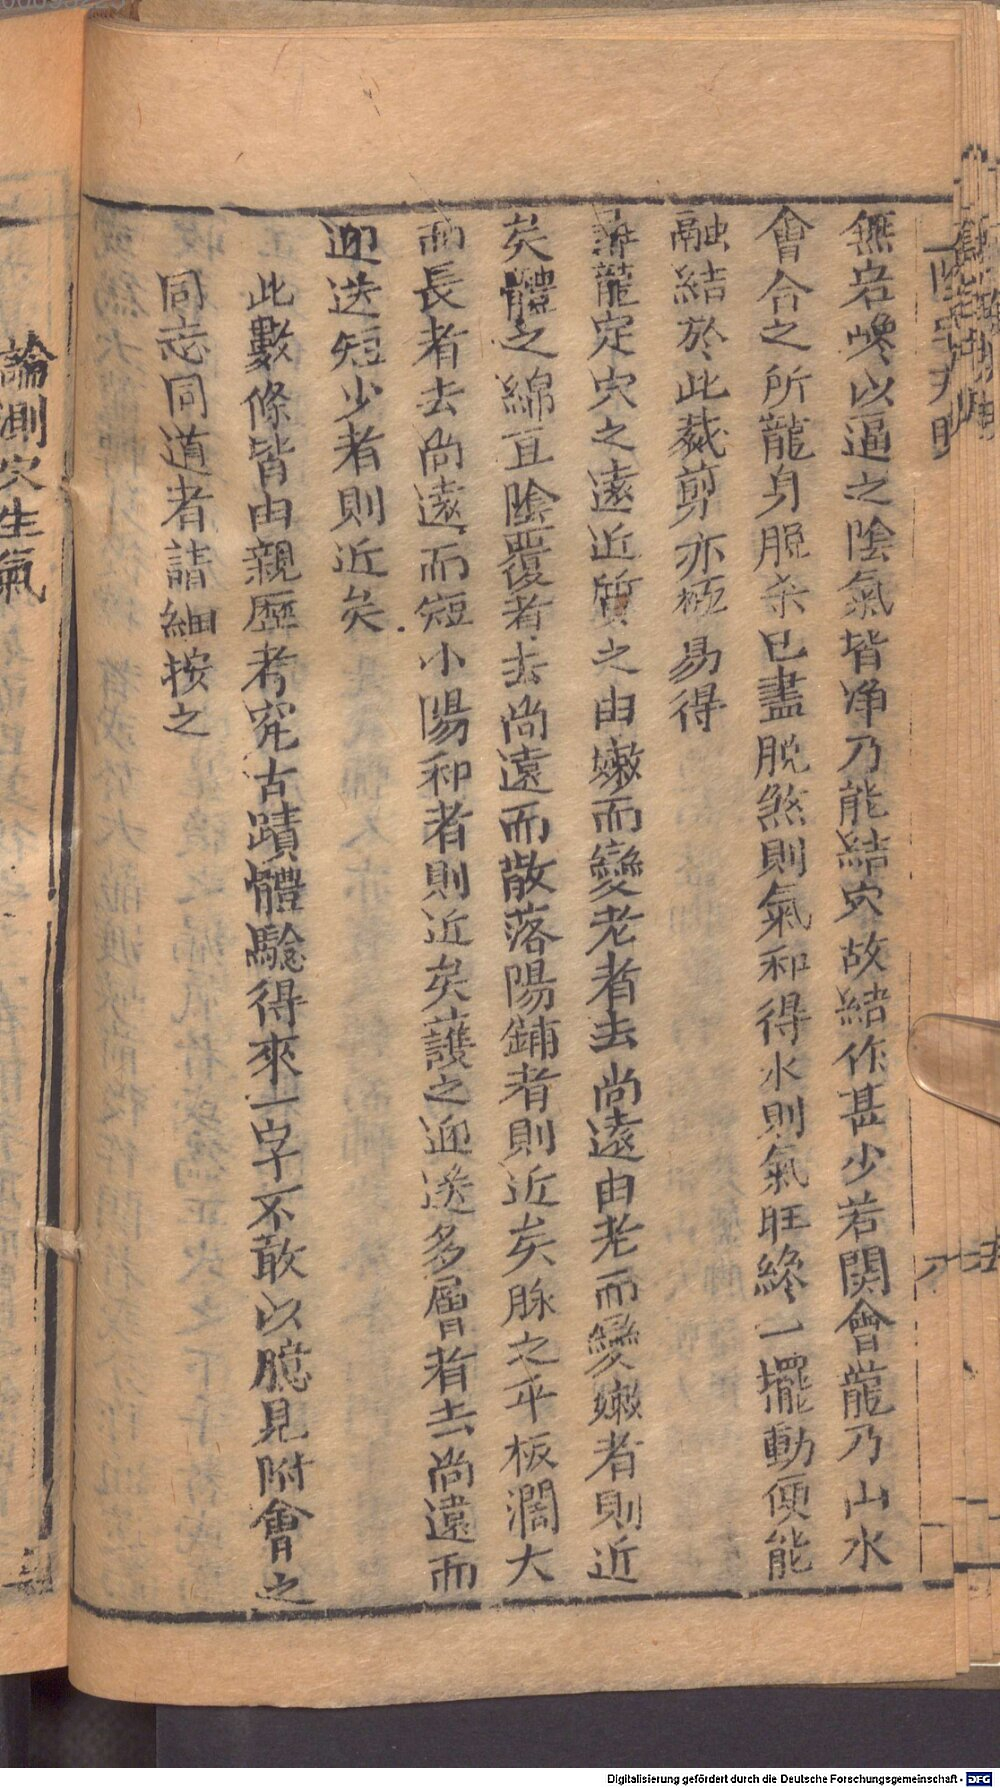 無岩巉以逼之陰氣皆净乃能結穴故結作甚少若関會龍乃山水
會合之所龍身脫杀已盡脱煞則氣和得水則氣旺終一擺動便能
融結於此裁剪亦極易得
龍定穴之遠近質之由嫩而變老者去尚遠由老而變嫩者則近
矣體之綿亘陰覆者去尚遠而散落陽鋪者則近矣脉之平板濶大
而長者去尚遠而短小陽和者則近矣護之迎送多層者去尚遠而
迎送短少者則近矣
此數條皆由親歷考究古蹟體驗得來一字不敢以臆見附會之
同志同道者請細按之
論測穴生氣
Digitalisierung gefördert durch die Deutsche Forschungsgemeinschaft - DFG